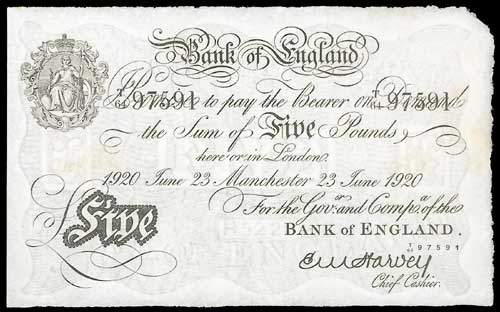 Bank of England
I Promise to pay the Bearer on Demand
T/64 97591 T/64 97591
the Sum of Five Pounds
here or in London.
1920 June 23 Manchester 23 June 1920
For the Gov.r and Comp.a of the
Five
BANK OF ENGLAND.
T/64 97591
E M Harvey
Chief Cashier.